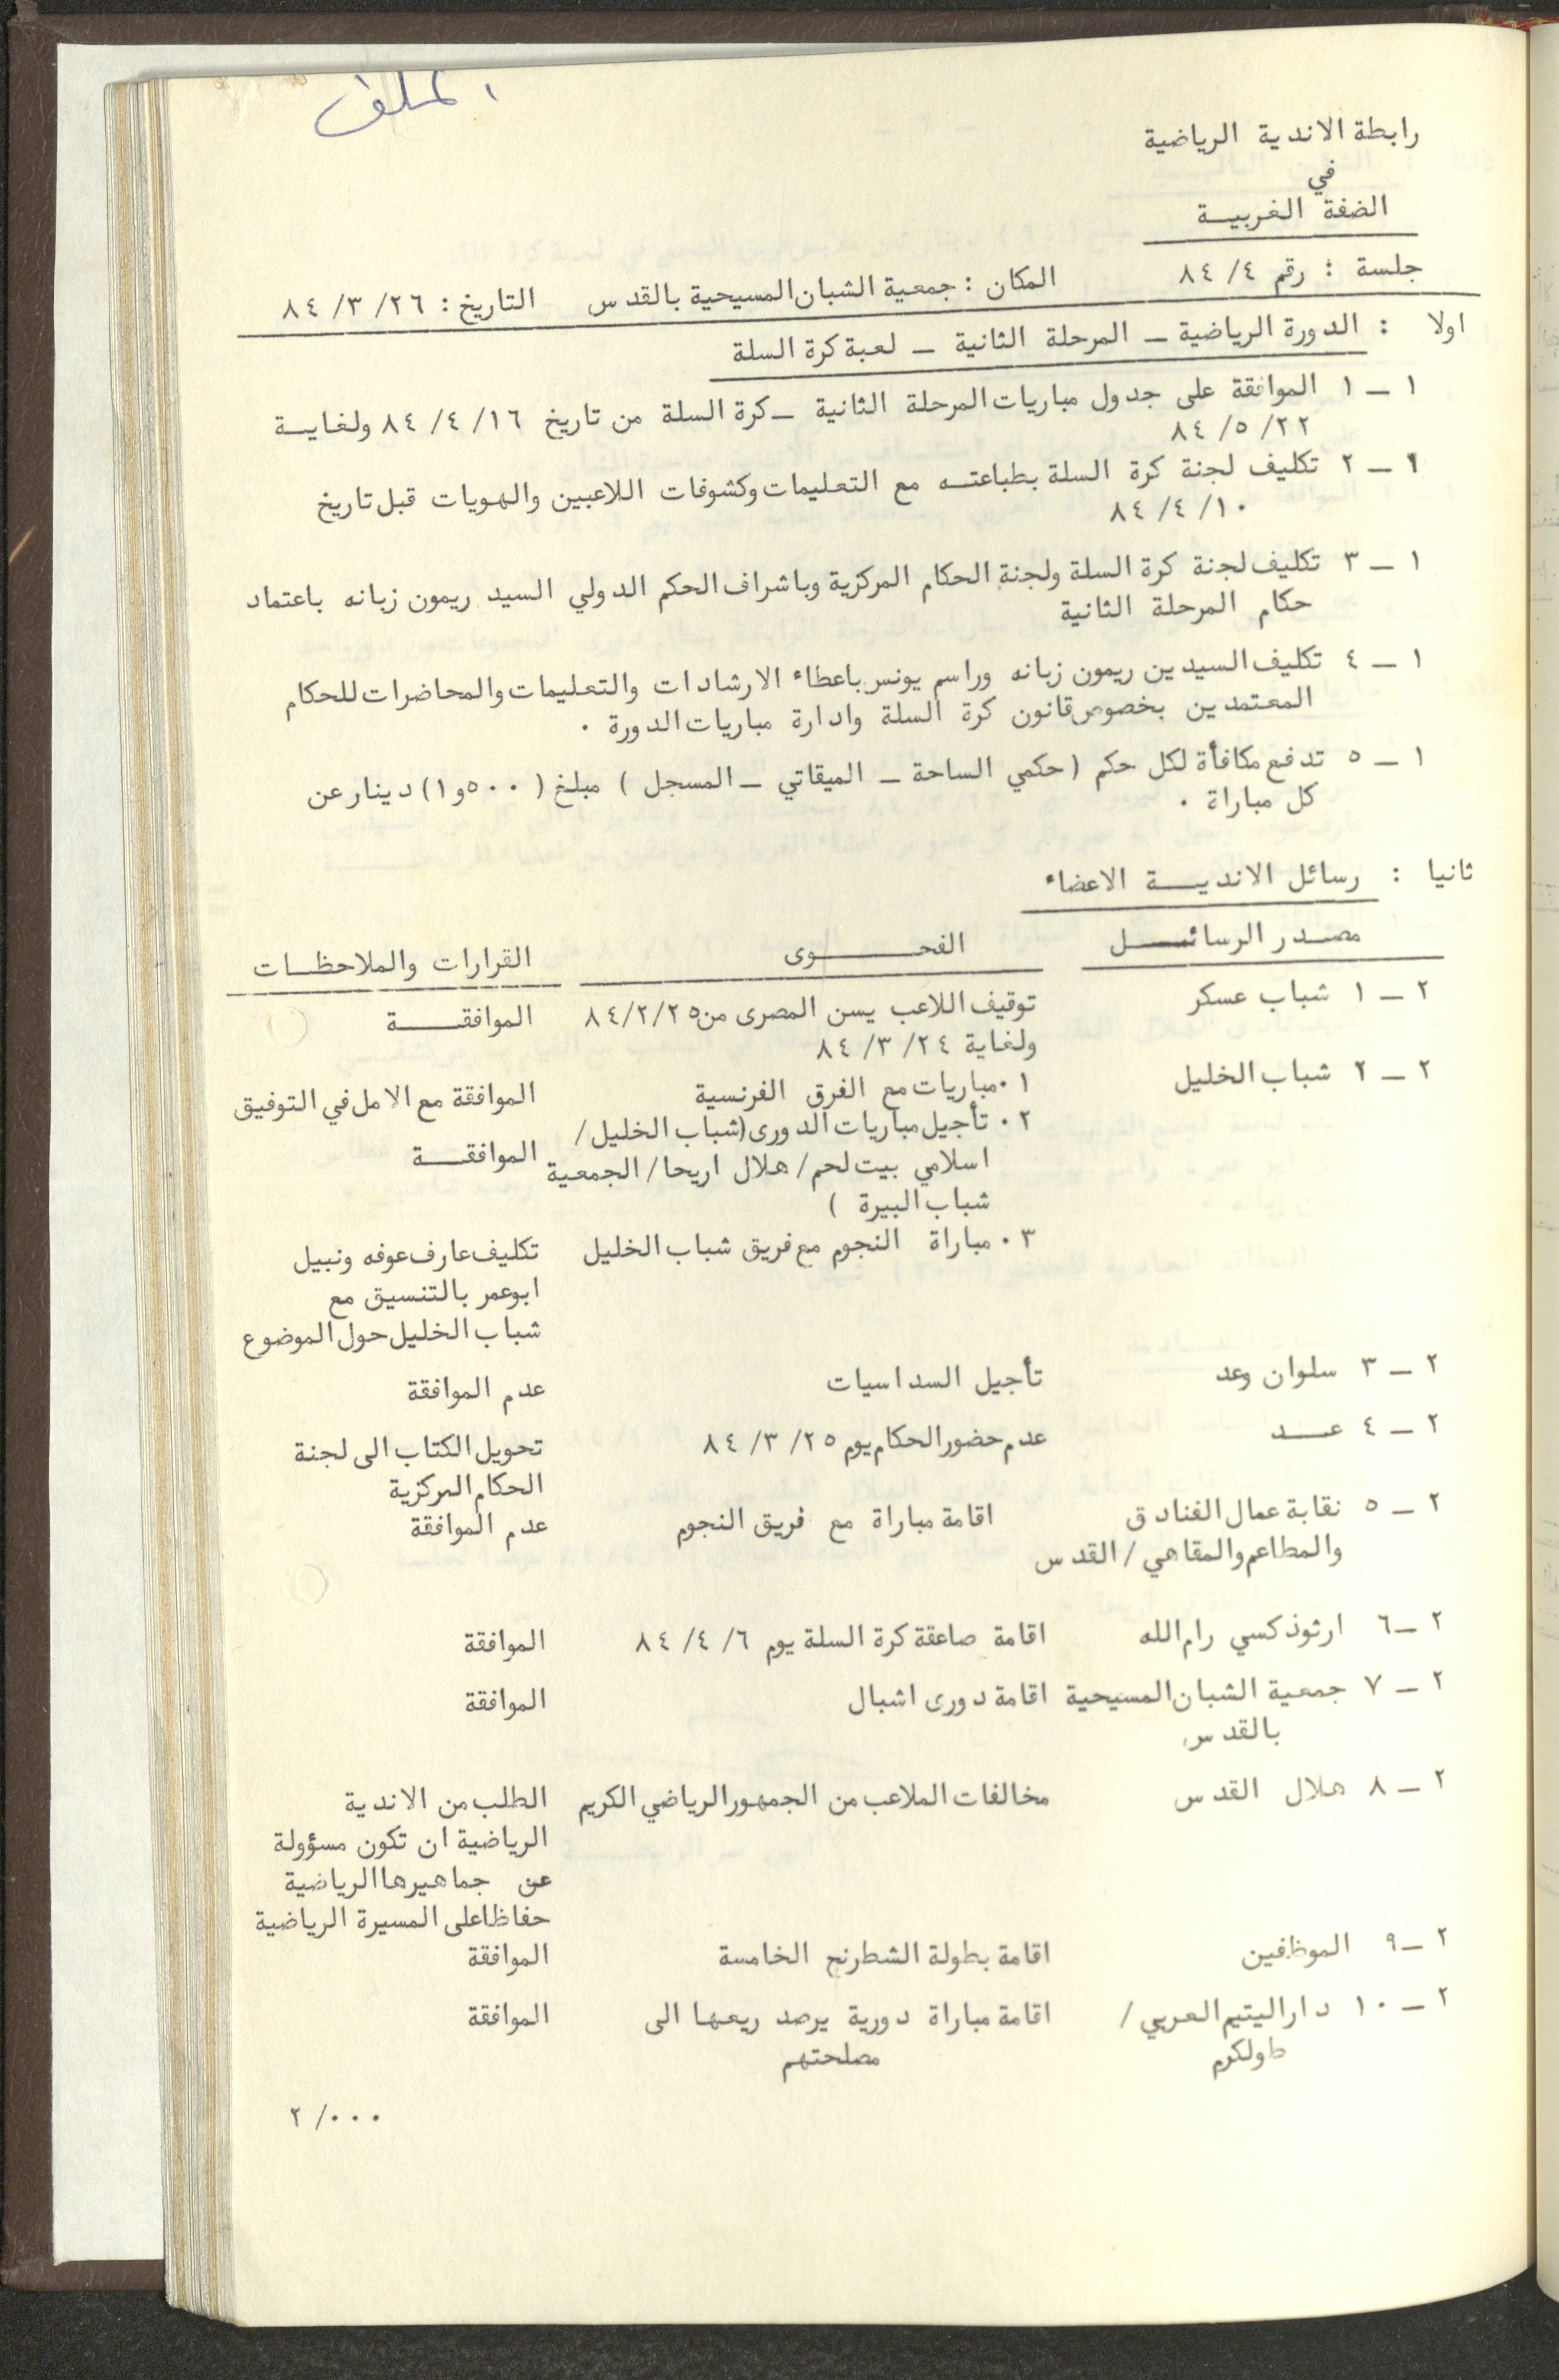 الملف
رابطة الاندية الرياضية
في
الضفة الغربيــة
جلسة : رقم ٤/ ٨٤ المكان : جمعية الشبان المسيحية بالقدس التاريخ : ٢٦/ ٣/ ٨٤
اولا : الدورة الرياضية ــ المرحلة الثانية ــ لعبة كرة السلة
١ ــ ١ الموافقة على جدول مباريات المرحلة الثانية ــ كرة السلة من تاريخ ١٦/ ٤/ ٨٤ ولغايــة
٢٢/ ٥/ ٨٤
١ ــ ٢ تكليف لجنة كرة السلة بطباعتــه مع التعليمات وكشوفات اللاعبين والهويات قبل تاريخ
١٠/ ٤/ ٨٤
١ ــ ٣ تكليف لجنة كرة السلة ولجنة الحكام المركزية وباشراف الحكم الدولي السيد ريمون زبانه باعتماد
حكام المرحلة الثانية
١ ــ ٤ تكليف السيدين ريمون زبانه وراسم يونس باعطاء الارشادات والتعليمات والمحاضرات للحكام
المعتمدين بخصوص قانون كرة السلة وادارة مباريات الدورة ٠
١ ــ ٥ تدفع مكافأة لكل حكم (حكمي الساحة ــ الميقاتي ــ المسجل ) مبلغ (٥٠٠و١) دينار عن
كل مباراة ٠
ثانيا : رسائل الانديــة الاعضاء
مصدر الرسائــل الفحــــوى القرارات والملاحظـات
٢ ــ ١ شباب عسكر توقيف اللاعب يسن المصرى من ٨٤/٢/٢٥ الموافقــــة
ولغاية ٢٤/ ٣/ ٨٤
٢ ــ ٢ شباب الخليل ١٠ مباريات مع الفرق الفرنسية الموافقة مع الامل في التوفيق
٢٠ تأجيل مباريات الدورى (شباب الخليل/
اسلامي بيت لحم/ هلال اريحا/ الجمعية الموافقــــة
شباب البيرة )
٣٠ مباراة النجوم مع فريق شباب الخليل تكليف عارف عوفه ونبيل
ابوعمر بالتنسيق مع
شباب الخليل حول الموضوع
٢ ــ ٣ سلوان وعد تأجيل السداسيات عدم الموافقة
٢ ــ ٤ عــــد عدم حضور الحكام يوم ٢٥/ ٣/ ٨٤ تحويل الكتاب الى لجنة
الحكام المركزية
٢ ــ ٥ نقابة عمال الفنادق اقامة مباراة مع فريق النجوم عدم الموافقة
والمطاعم والمقاهي /القدس
٢ ــ ٦ ارثوذكسي رام الله اقامة صاعقة كرة السلة يوم ٦/ ٤/ ٨٤ الموافقة
٢ ــ ٧ جمعية الشبان المسيحية اقامة دورى اشبال الموافقة
بالقدس
٢ ــ ٨ هلال القدس مخالفات الملاعب من الجمهور الرياضي الكريم الطلب من الاندية
الرياضية ان تكون مسؤولة
عن جماهيرها الرياضية
حفاظا على المسيرة الرياضية
٢ ــ ٩ الموظفين اقامة بطولة الشطرنج الخامسة الموافقة
٢ ــ ١٠ دار اليتيم العربي / اقامة مباراة دورية يرصد ريعها الى الموافقة
طولكرم مصلحتهم
٢ /٠٠٠